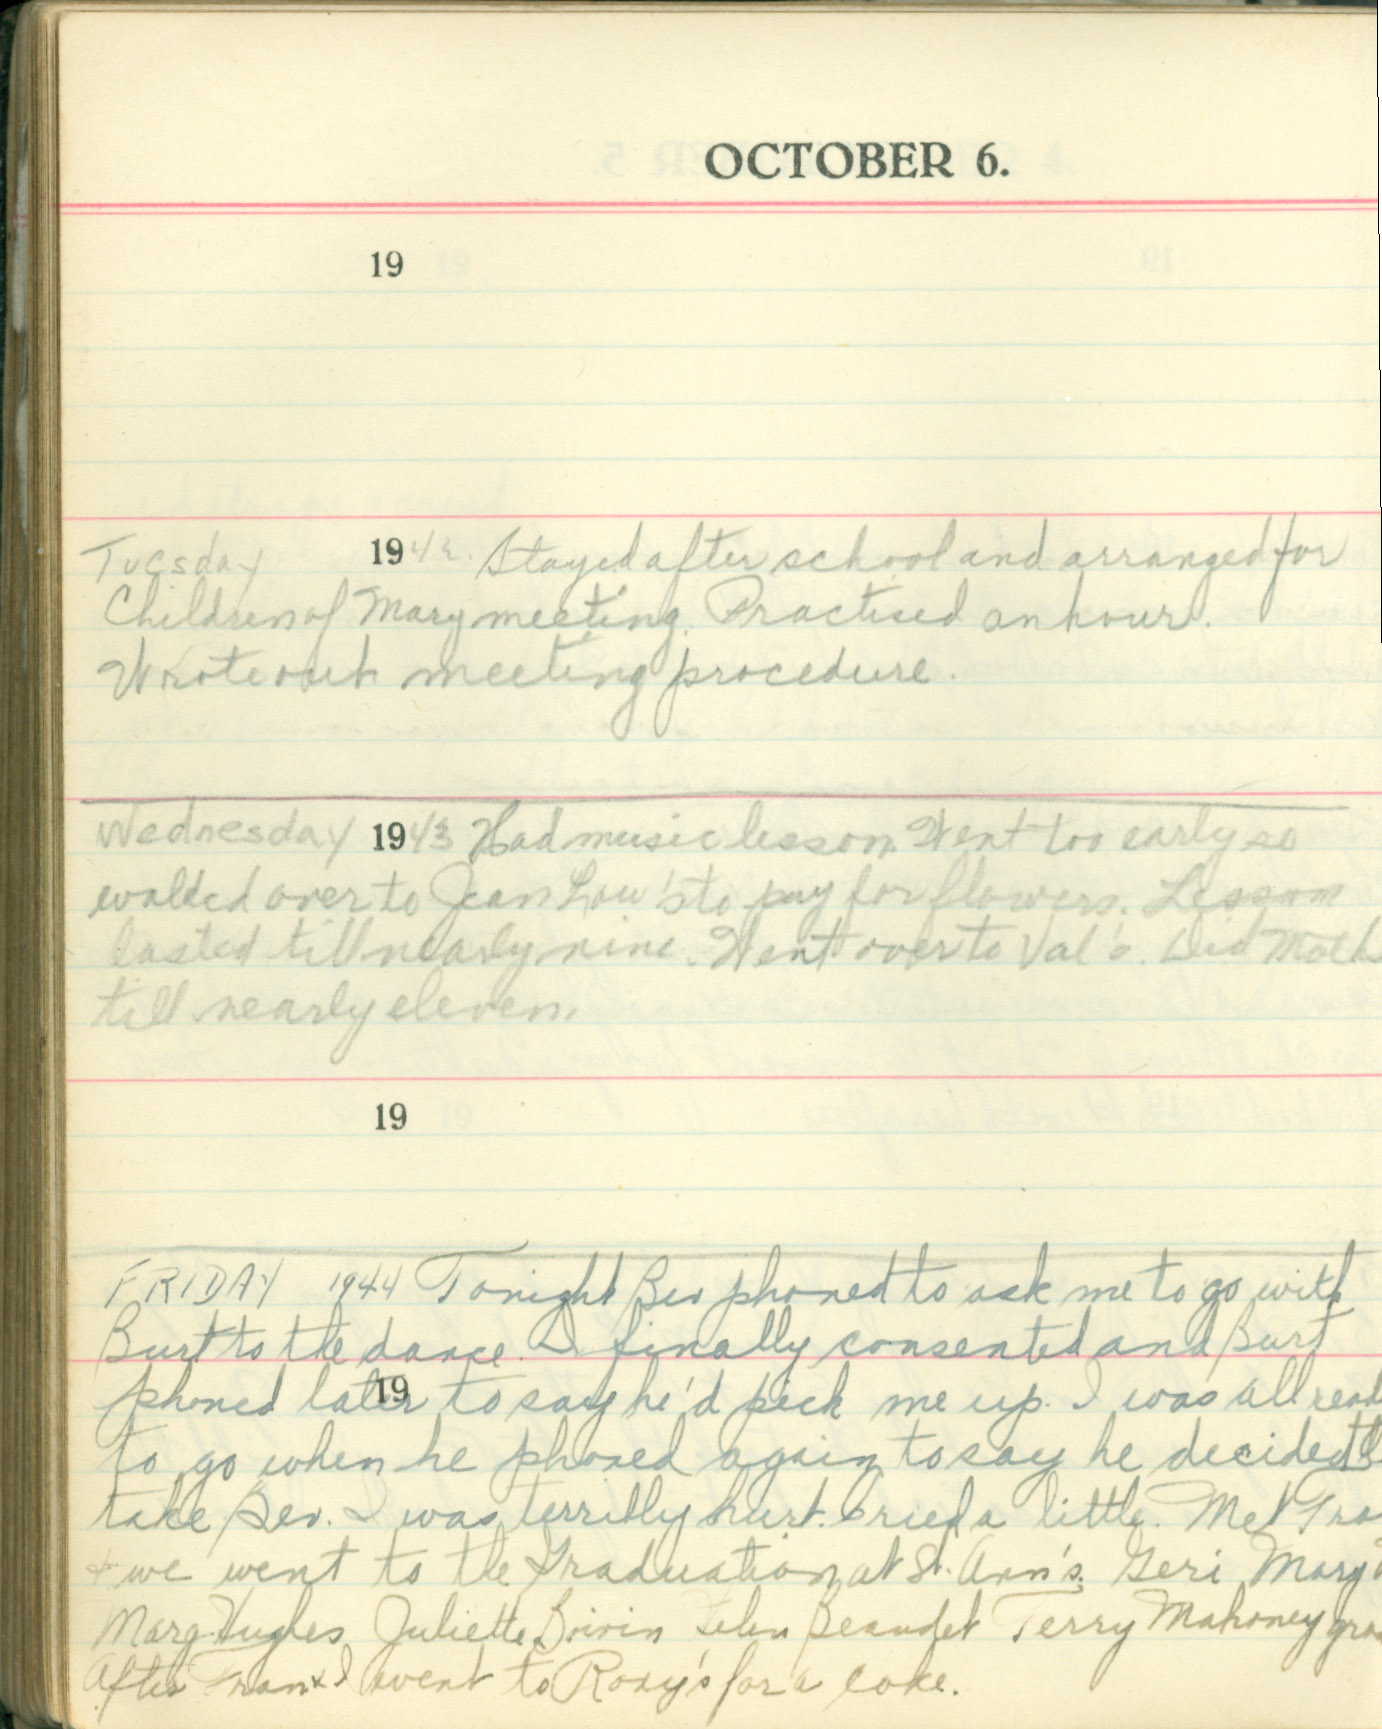 OCTOBER 6.
19
Tuesday 1942. Stayed after school and arranged for
Children of Mary meeting. Practised an hour.
Wrote out meeting procedure.
Wednesday 1943 Had music lesson. Went too early so
walked over to Jean Lou's to pay for flowers. Lesson
lasted till nearly nine. Went over to Val's. Did Math
till nearly eleven.
19
FRIDAY 1944 Tonight Bev phoned to ask me to go with
Burt to the dance. I finally consented and Burt
19
phoned later to say he'd pick me up. I was all read
to go when he phoned again to say he decided
take Bev. I was terribly hurt. Cried a little. Met Fra
+ we went to the Graduation at St. Ann's. Geri Mary
Marg Hughes Juliette Boivin Helen Beaudet Terry Mahoney gra
After Fran & I went to Roxy's for a coke.